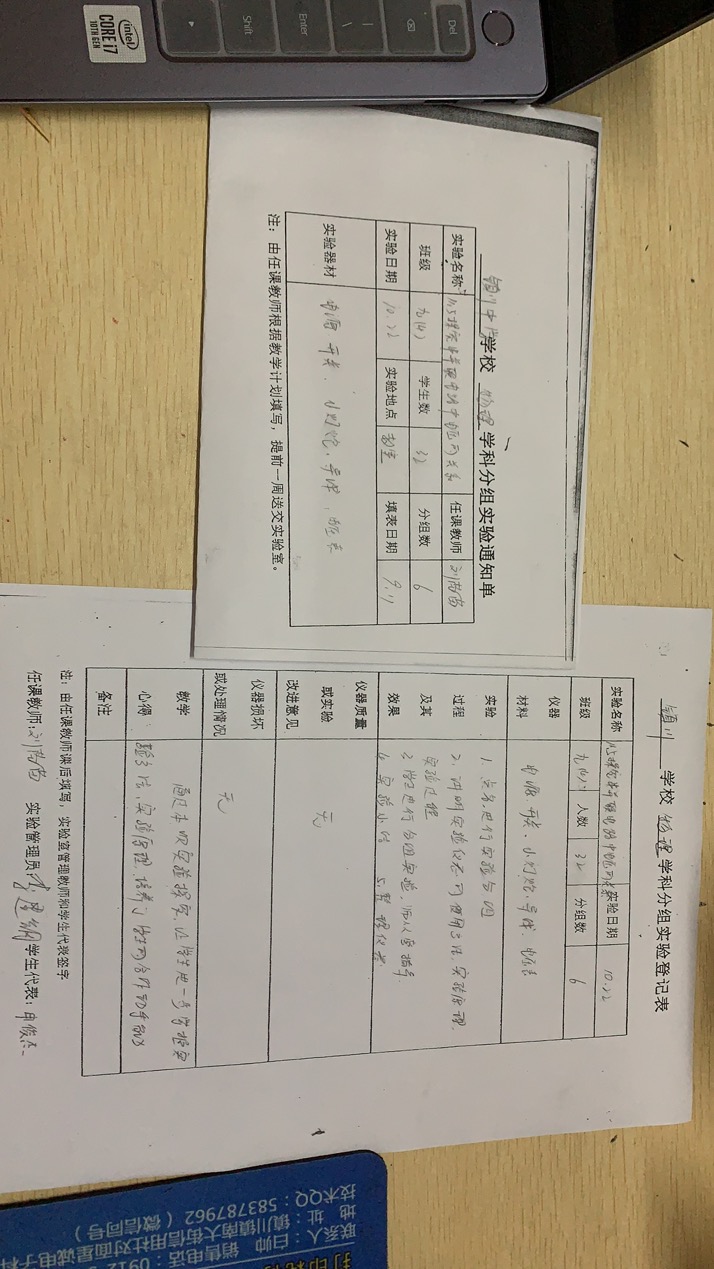 Del
Enter
Shift
intel
CORE i7
10TH GEN
镇川中学 学校 物理 学科分组实验通知单
实验名称 11.5探究串并联电路中电压的关系 任课教师
班级 九(4) 学生数 32 分组数 6
实验日期 10.22 实验地点 教室 填表日期 9.1
实验器材 电源 开关、小灯泡、导线、电压表
注：由任课教师根据教学计划填写，提前一周送交实验室。
镇川 学校 物理 学科分组实验登记表
实验名称 11.5探究串并联电路中电压的关系 实验日期 10.22
班级 九(4) 人数 32 分组数 6
仪器
材料
电源、开关、小灯泡、导线、电压表
实验
过程
及其
效果
1. 点名，进行实验分组
2. 讲明实验仪器的使用方法，实验原理，
实验过程
3. 学生进行分组实验，师从旁指导
4. 实验小结 5. 整理仪器
仪器质量
或实验
改进意见
无
仪器损坏
或处理情况
无
教学
心得
通过本次实验探究，让学生进一步掌握实
验方法，实验原理，培养了学生的合作动手能力
备注
注：由任课教师课后填写，实验室管理教师和学生代表签字
任课教师： 实验管理员： 学生代表：
联系人：白帅 销售电话：0912
地 址：镇川镇南大街信用社对面星诚电子科
技术QQ：583787962（微信同号）